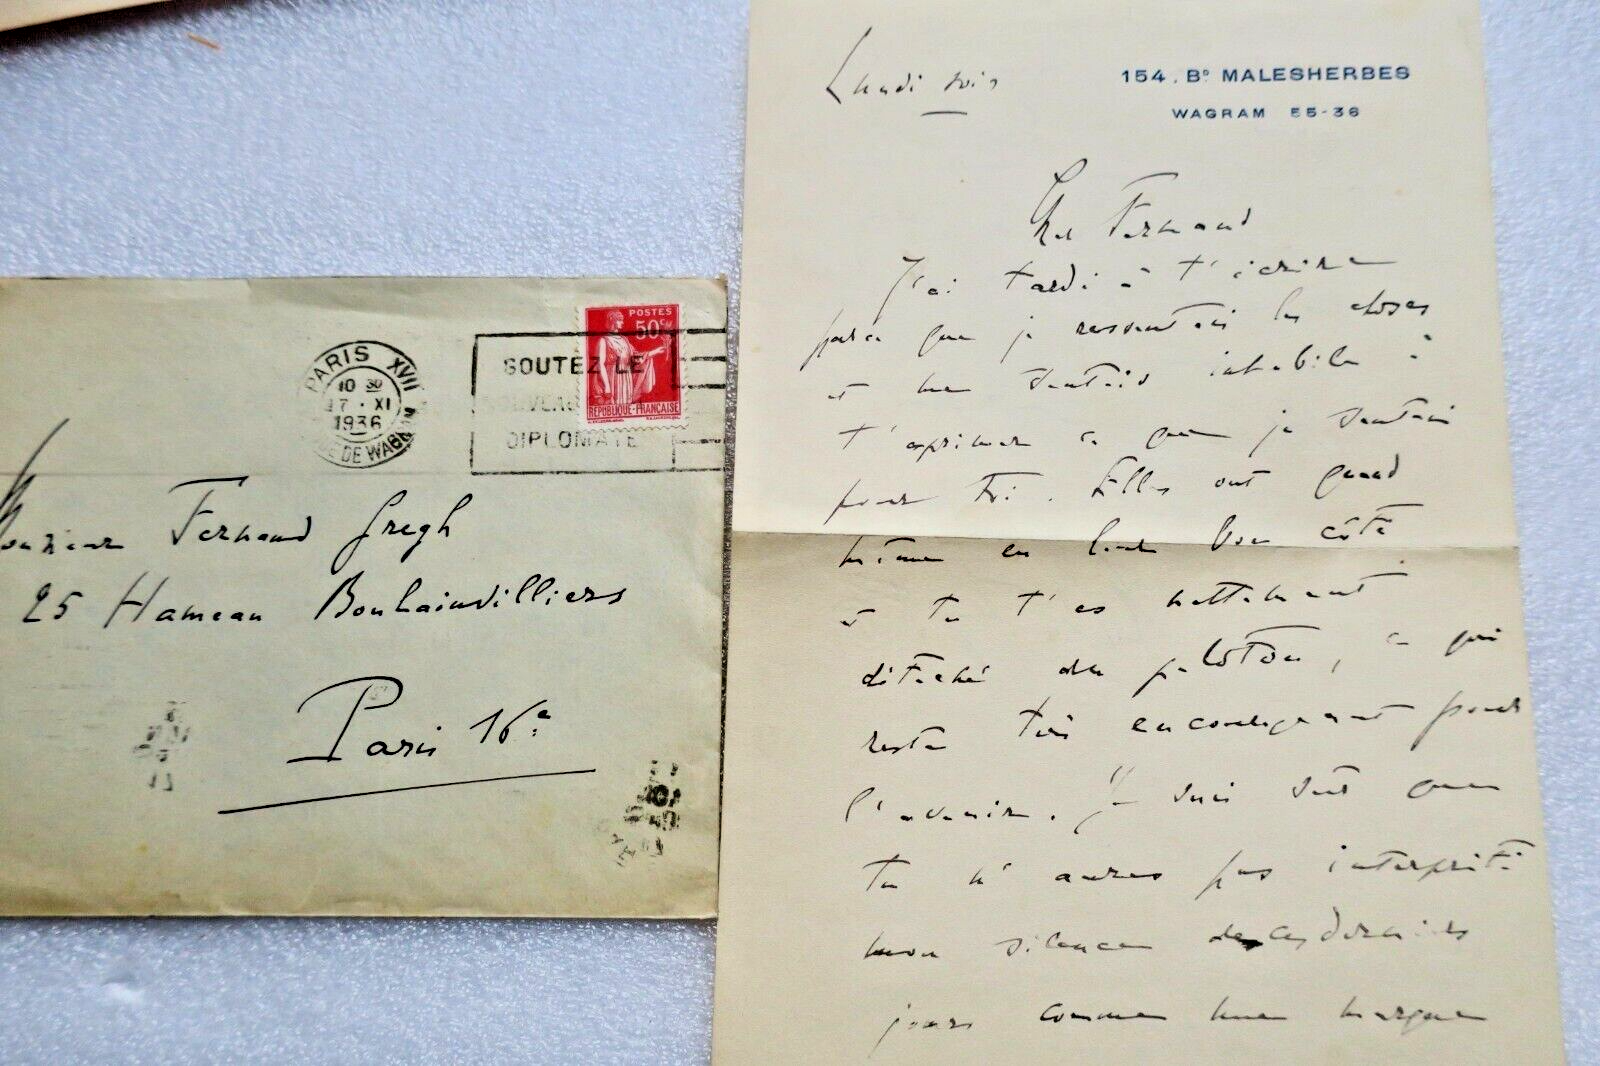 PARIS XVII
10 30
17 · XI
1936
DE WAGRAM
SOUTEZ LE
DIPLOMATE
POSTES
50c
REPUBLIQUE-FRANÇAISE
Monsieur Fernand Gregh
25 Hameau Boulainvilliers
Paris 16e
Lundi soir
154, Bd MALESHERBES
WAGRAM 55-36
Cher Fernand
J'ai tardé à t'écrire
parce que je ressentais les choses
et me sentais inhabile à
t'exprimer ce que je sentais
pour toi. Elles ont quand
même eu leur bon côté
et tu t'es nettement
détaché du peloton, ce qui
reste très encourageant pour
l'avenir. Je suis sûr que
tu n'auras pas interprété
mon silence de ces derniers
jours comme une marque